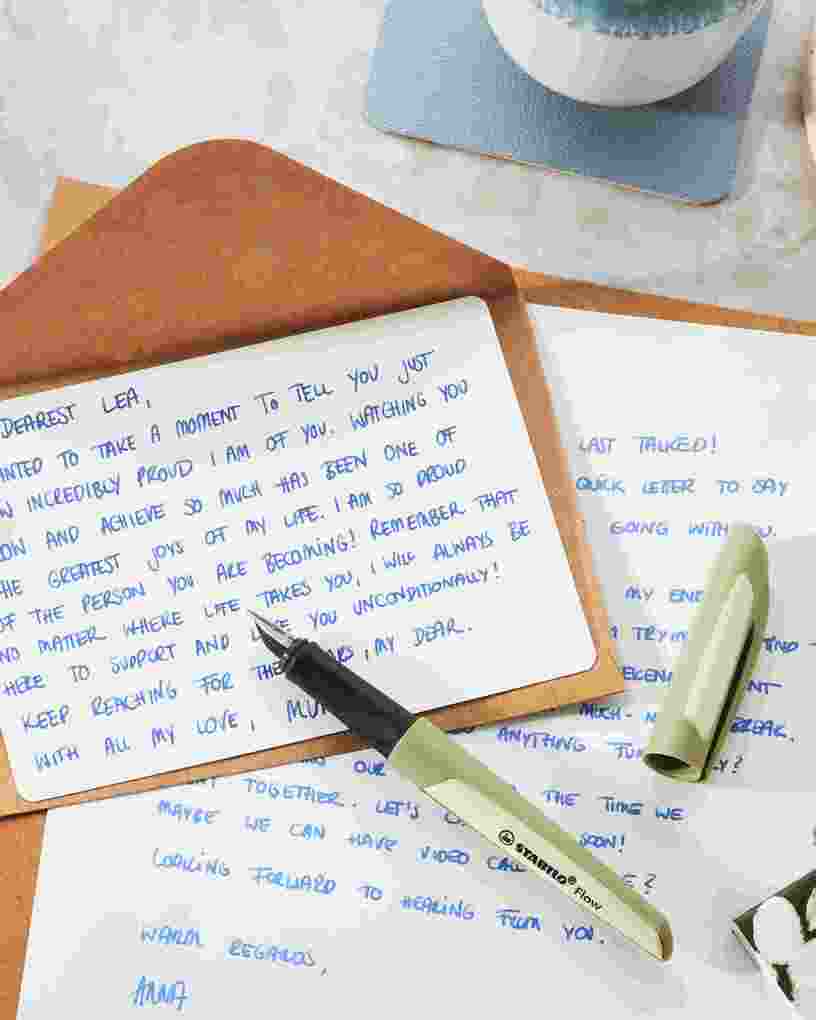 DEAREST LEA,
TO TAKE A MOMENT TO TELL YOU JUST
INCREDIBLY PROUD I AM OF YOU. WATCHING YOU
AND ACHIEVE SO MUCH HAS BEEN ONE OF
GREATEST JOYS OF MY LIFE. I AM SO PROUD
OF THE PERSON YOU ARE BECOMING! REMEMBER THAT
NO MATTER WHERE LIFE TAKES YOU, I WILL ALWAYS BE
HERE TO SUPPORT AND YOU UNCONDITIONALLY!
KEEP REACHING FOR , MY DEAR.
WITH ALL MY LOVE,
LAST TALKED!
QUICK LETTER TO SAY
GOING WITH
MY
MUCH-
ANYTHING
OUR
TOGETHER. LET'S THE TIME WE
MAYBE WE CAN HAVE VIDEO CALL SOON!
LOOKING FORWARD TO HEARING FROM YOU.
WARM REGARDS,
ANNA
STABILO® Flow